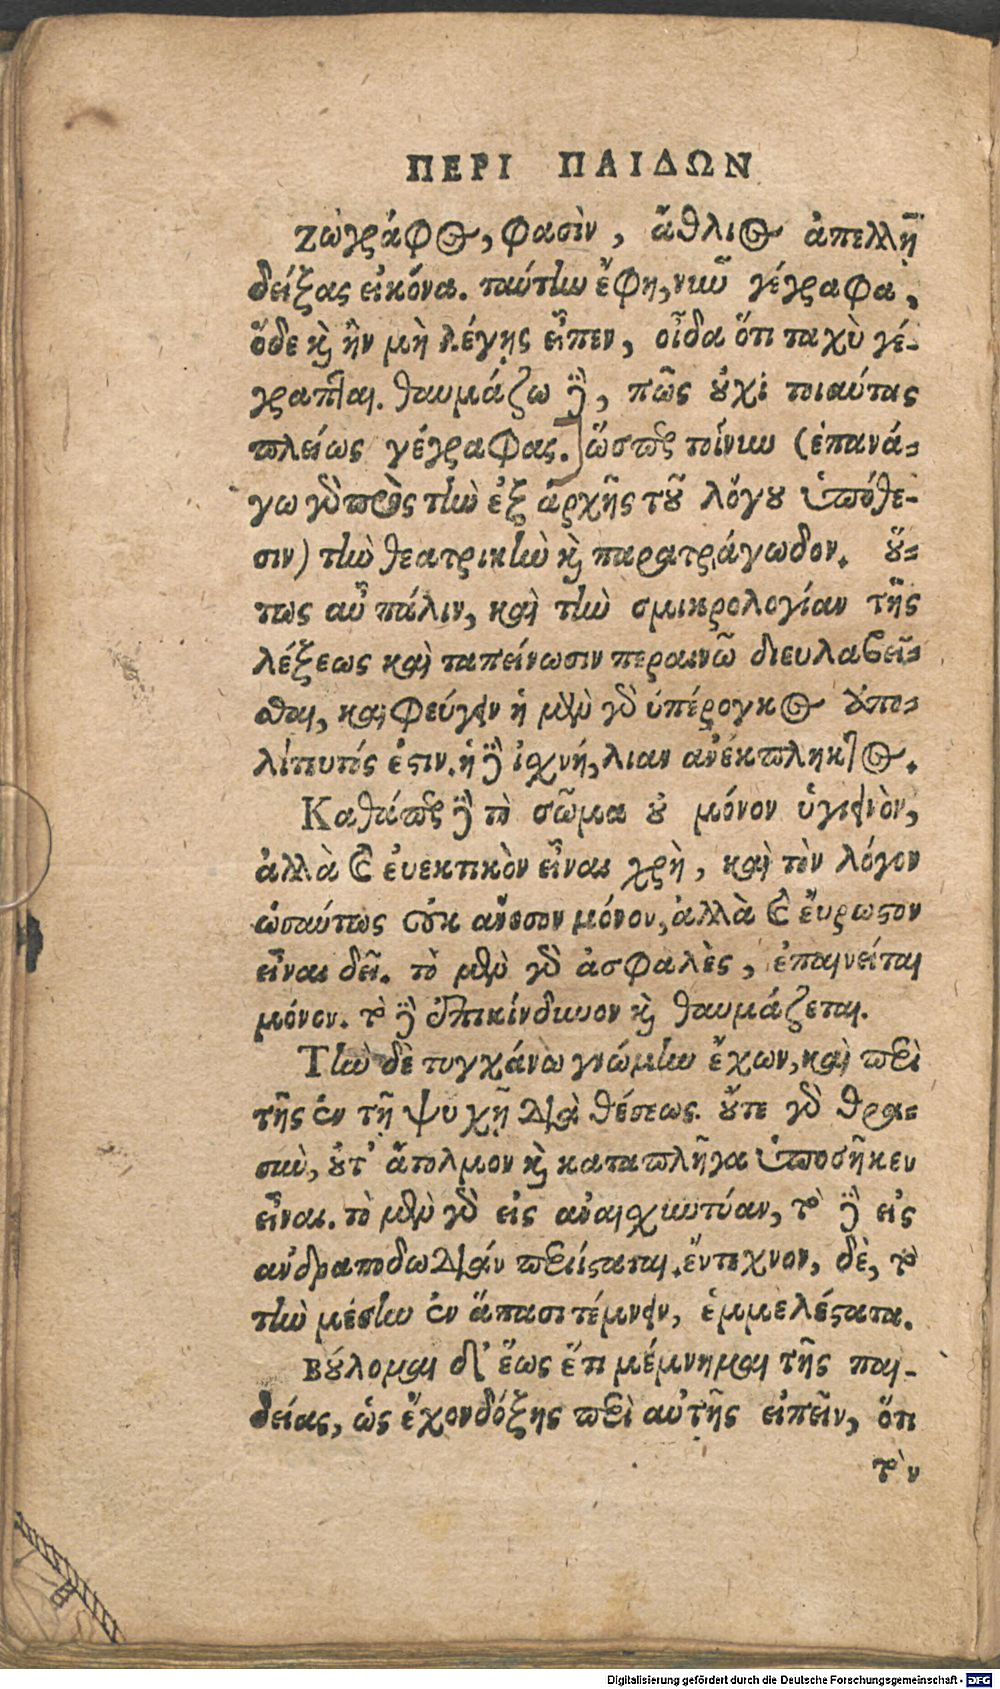 ΠΕΡΙ ΠΑΙΔΩΝ
Ζωγράφος, φασὶν, ἄθλιος ἀπελλῇ
δείξας εἰκόνα. ταύτην ἔφη, νῦν γέγραφα,
ὅδε καὶ ἢν μὴ λέγῃς εἶπεν, οἶδα ὅτι ταχὺ γέ-
γραπται. θαυμάζω δὲ, πῶς οὐχὶ τοιαύτας
πλείως γέγραφας.] ὥσπερ τοίνυν (ἐπανά-
γω γὰρ πρὸς τὴν ἐξ ἀρχῆς τοῦ λόγου ὑπόθε-
σιν) τὴν θεατρικὴν καὶ παρατράγωδον. οὕ-
τως αὖ πάλιν, καὶ τὴν σμικρολογίαν τῆς
λέξεως καὶ ταπείνωσιν περαινῶ διευλαβεῖ-
σθαι, καὶ φεύγειν ἡ μὲν γὰρ ὑπέρογκος ἀπο-
λίτευτός ἐστιν. ἡ δὲ ἰσχνή, λίαν ἀνέκπληκτος.
Καθάπερ δὲ τὸ σῶμα οὐ μόνον ὑγιεινὸν,
ἀλλὰ καὶ εὐεκτικὸν εἶναι χρὴ, καὶ τὸν λόγον
ὡσαύτως οὐκ ἄνοσον μόνον, ἀλλὰ καὶ εὔρωστον
εἶναι δεῖ. τὸ μὲν γὰρ ἀσφαλὲς, ἐπαινεῖται
μόνον. τὸ δὲ ἐπικίνδυνον καὶ θαυμάζεται.
Τὴν δὲ τυγχάνω γνώμην ἔχων, καὶ περὶ
τῆς ἐν τῇ ψυχῇ διαθέσεως. οὔτε γὰρ θρα-
σὺν, οὔτ' ἄτολμον καὶ καταπλῆγα ὑποσῆκεν
εἶναι. τὸ μὲν γὰρ εἰς ἀναισχυντίαν, τὸ δὲ εἰς
ἀνδραποδωδίαν περιίσταται. ἔντεχνον, δὲ, τὸ
τὴν μέσην ἐν ἅπασι τέμνειν, ἐμμελέστατα.
Βούλομαι δ' ἕως ἔτι μέμνημαι τῆς παι-
δείας, ὡς ἔχον δόξης περὶ αὐτῆς εἰπεῖν, ὅτι
τὸν
Digitalisierung gefördert durch die Deutsche Forschungsgemeinschaft - DFG